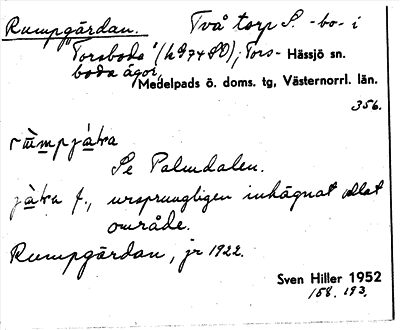 Rumpgärdan. Två torp S. -bo- i
"Torsboda" (hd 74 SO); Tors- Hässjö sn.
boda ägor, Medelpads ö. doms. tg, Västernorrl. län.
356.
rùmpjáka
Se Palmdalen.
jàka f., ursprungligen inhägnat odlat
område.
Rumpgärdan, jr 1922.
Sven Hiller 1952
158. 193.